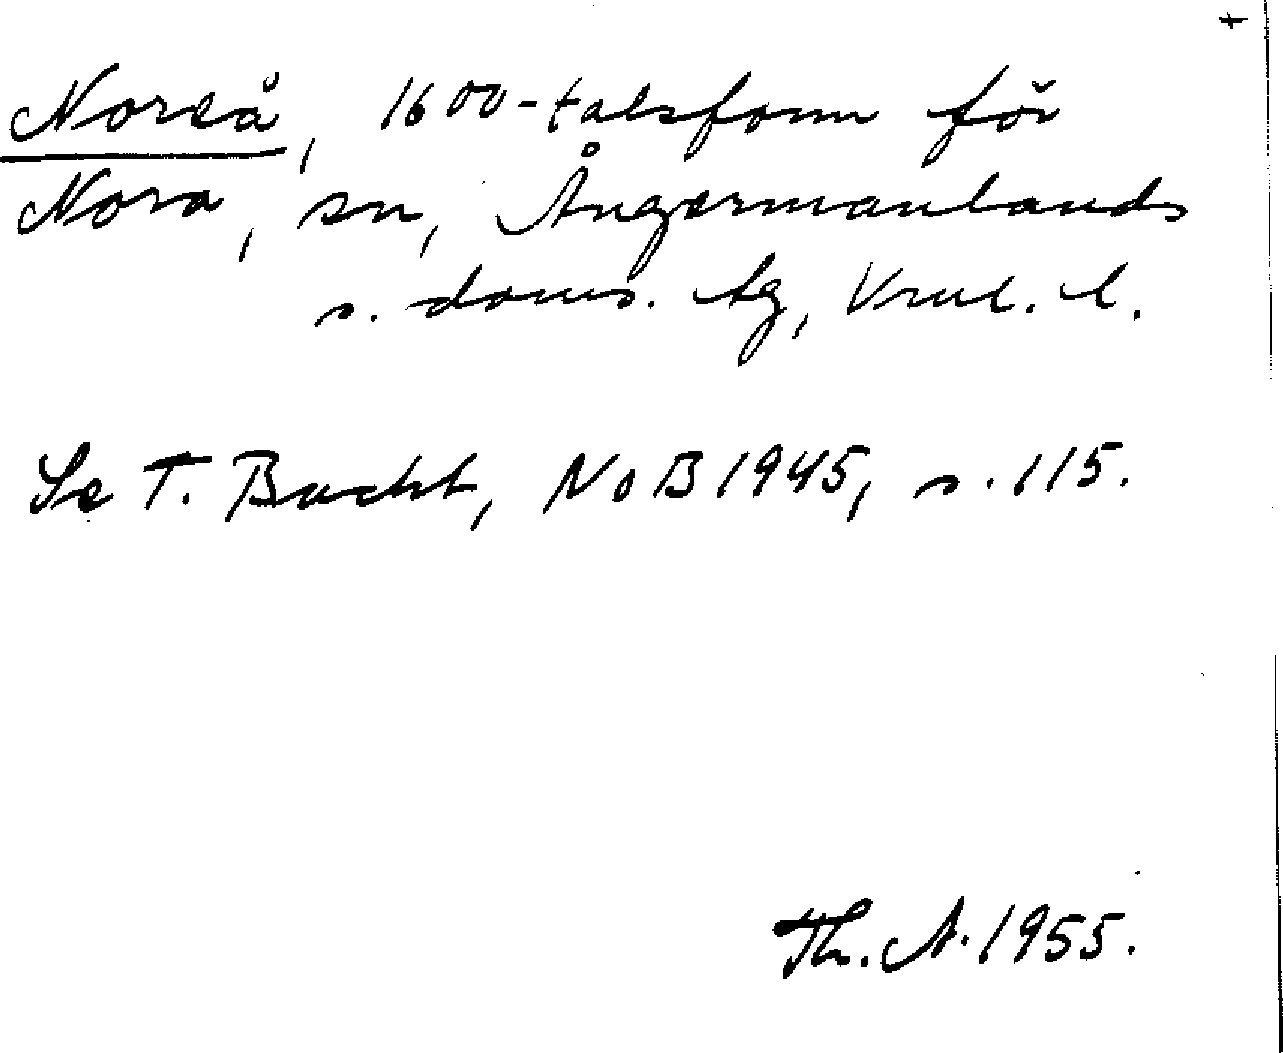 Noreå, 1600-talsform för
Nora, sn, Ångermanlands
s. doms. tg, Vrnl. l.
Se T. Bucht, NoB 1945, s. 115.
Th. A. 1955.